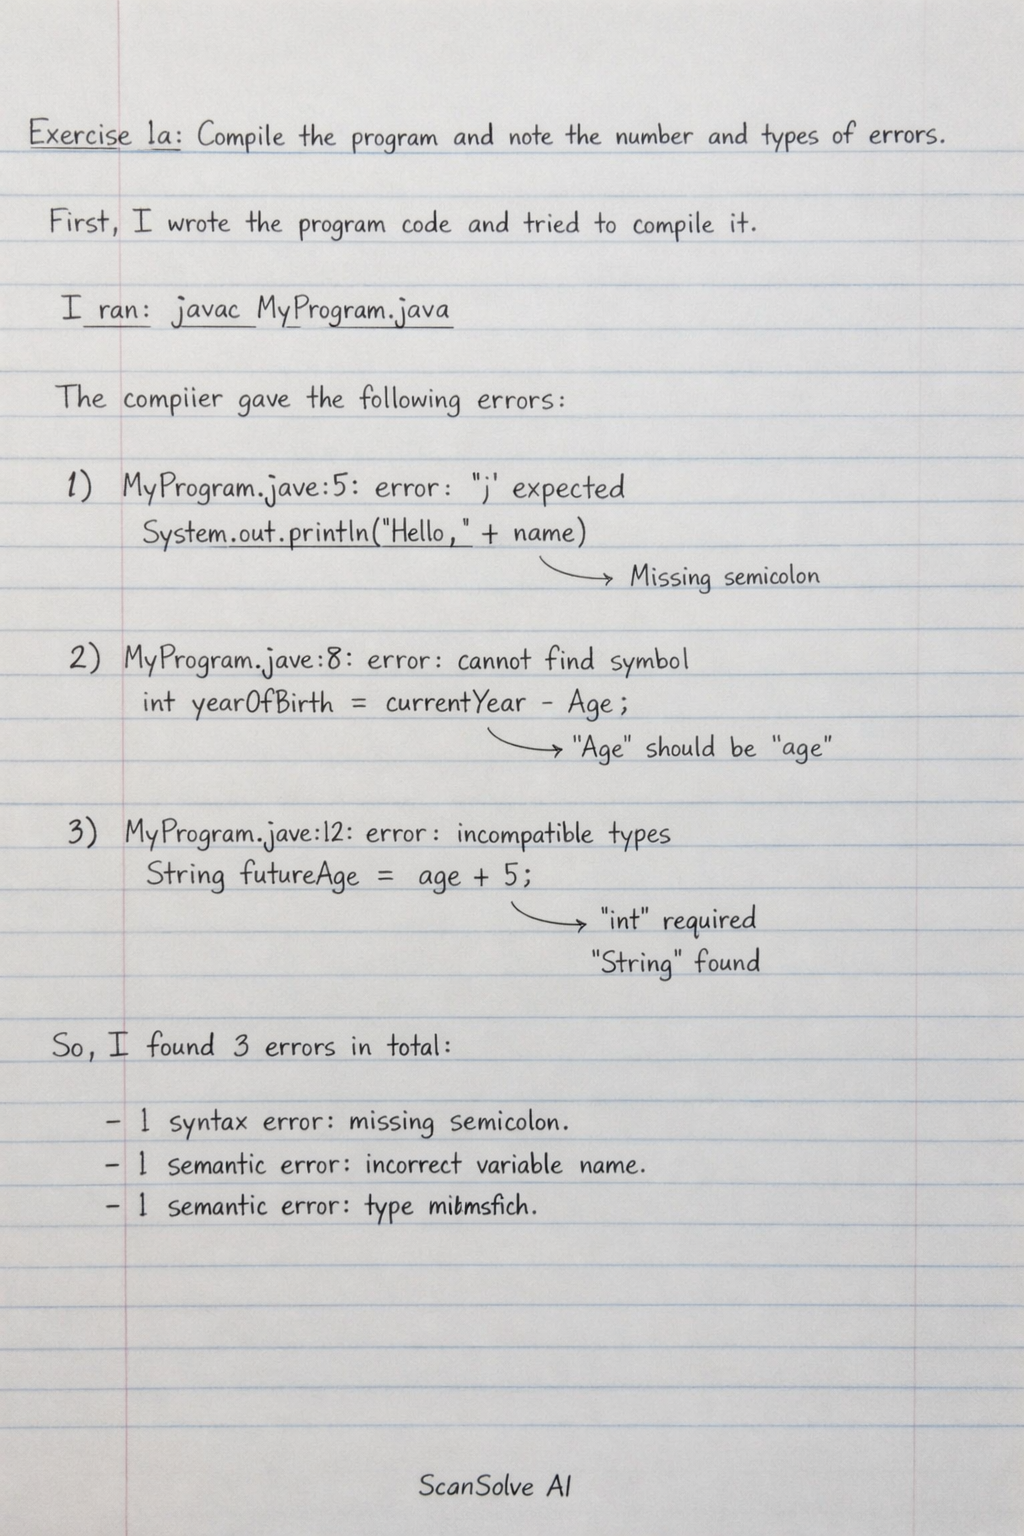 Exercise 1a: Compile the program and note the number and types of errors.
First, I wrote the program code and tried to compile it.
I ran: javac MyProgram.java
The compiier gave the following errors:
1) MyProgram.jave:5: error: "j' expected
System.out.println("Hello," + name)
Missing semicolon
2) MyProgram.jave:8: error: cannot find symbol
int yearOfBirth = currentYear - Age;
"Age" should be "age"
3) MyProgram.jave:12: error: incompatible types
String futureAge = age + 5;
"int" required
"String" found
So, I found 3 errors in total:
- 1 syntax error: missing semicolon.
- 1 semantic error: incorrect variable name.
- 1 semantic error: type
ScanSolve AI